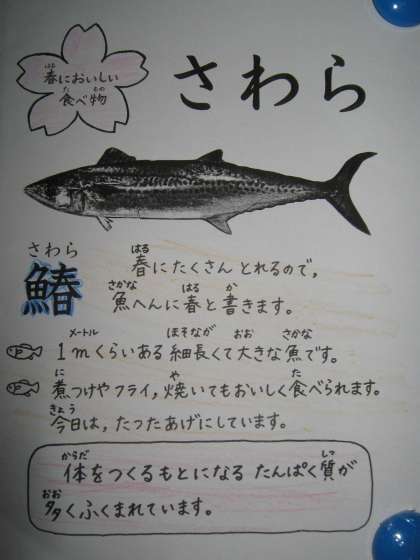 春においしい
食べ物
さわら
さわら
鰆
春にたくさんとれるので,
魚へんに春と書きます。
1mくらいある細長くて大きな魚です。
煮つけやフライ,焼いてもおいしく食べられます。
今日は,たつたあげにしています。
体をつくるもとになるたんぱく質が
多くふくまれています。